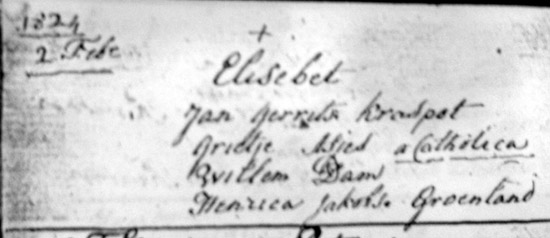 1824
2 Feb
+
Elisebet
Jan Gerrits Kraspot
Grietje a Catholica
Willem Dam
Henrica Jakobs. Groenland